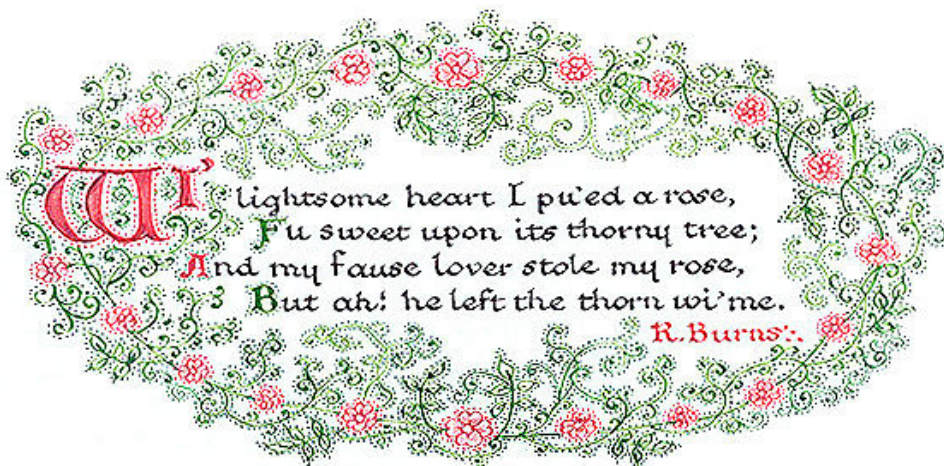 Wi' lightsome heart I pu'ed a rose,
Fu sweet upon its thorny tree;
And my fause lover stole my rose,
But ah! he left the thorn wi' me.
R. Burns:.